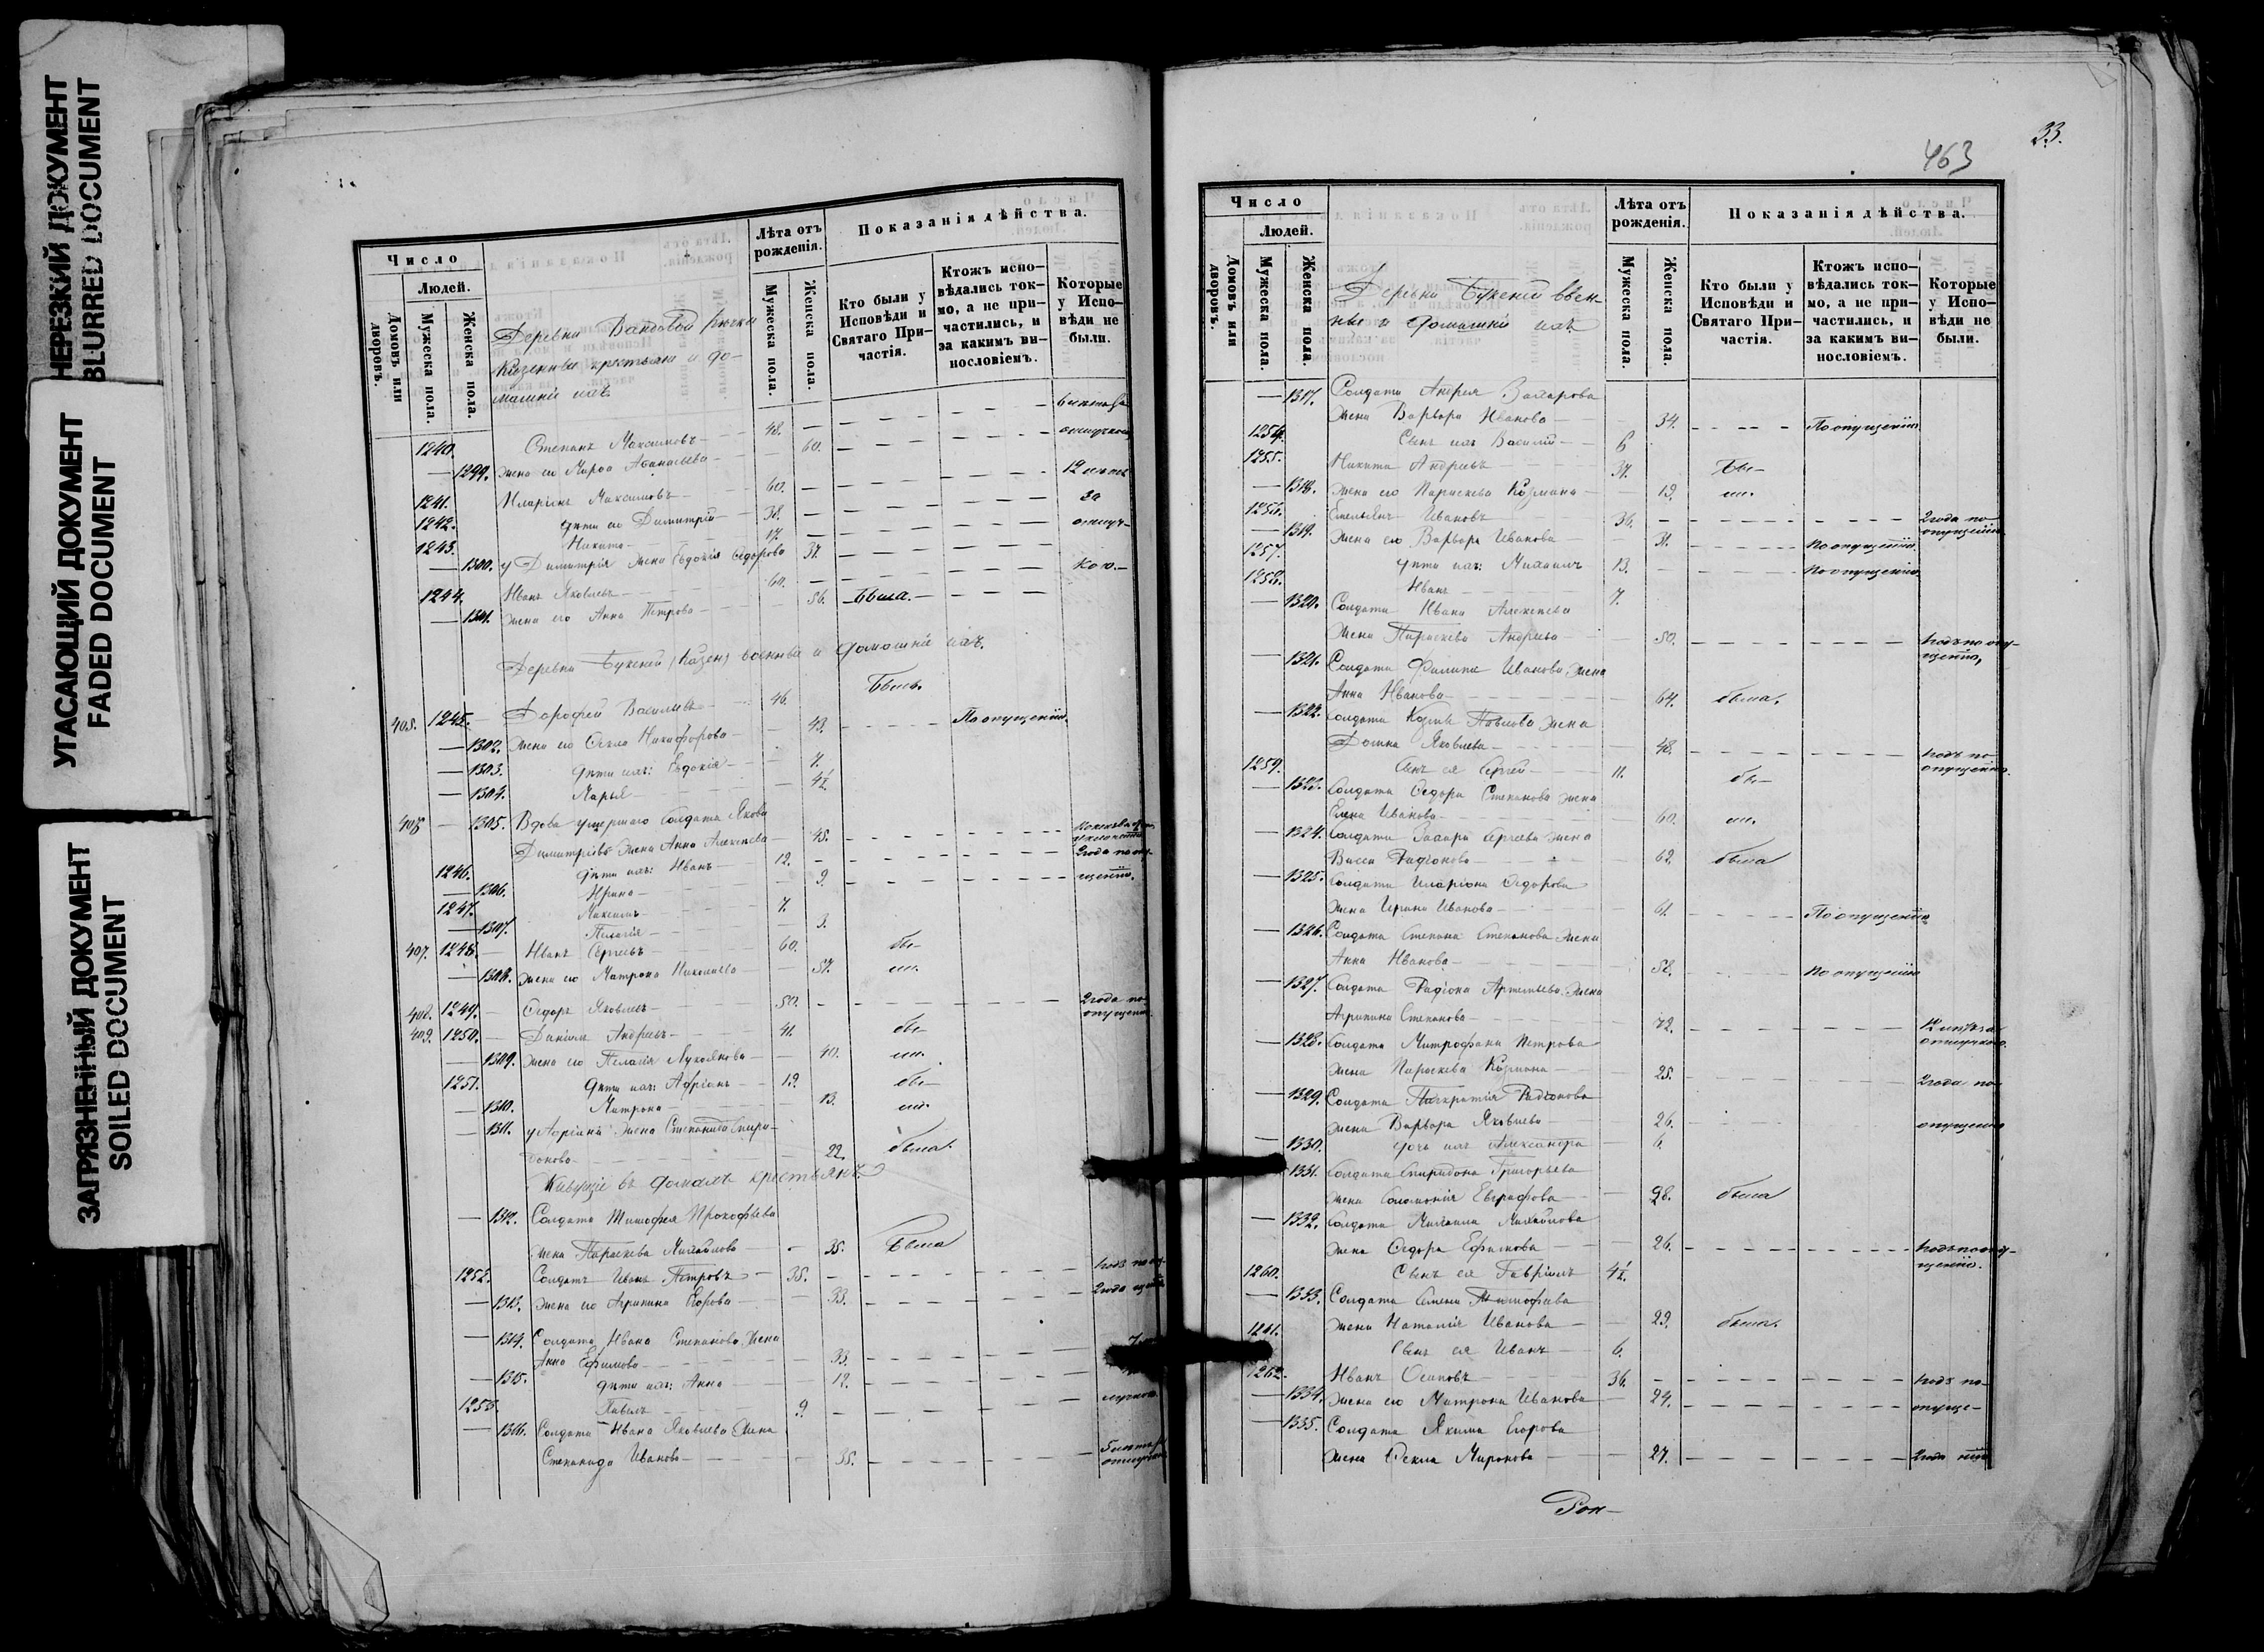 НЕРЕЗКИЙ ДОКУМЕНТ
BLURRED DOCUMENT
УГАСАЮЩИЙ ДОКУМЕНТ
FADED DOCUMENT
ЗАГРЯЗНЕННЫЙ ДОКУМЕНТ
SOILED DOCUMENT
Число
Людей.
Домовъ или дворовъ.
Мужеска пола.
Женска пола.
Лѣта отъ рожденія.
Мужеска пола.
Женска пола.
Показанія дѣйства.
Кто были у Исповѣди и Святаго Причастія.
Ктожъ исповѣдались токмо, а не причастились, и за какимъ винословіемъ.
Которые у Исповѣди не были.
Деревни
крестьяне и до-
машніи ихъ
1240. Степанъ Максимовъ 48.
1299. Жена его Марѳа Аѳанасьева 60.
1241. Иларіонъ Максимовъ 60. 12 лѣтъ
1242. Дѣти его Димитрій 38. за
1243. Никита 17. отлуч-
1300. у Димитрія жена Евдокія Ѳедорова 37.
1244. Иванъ Яковлевъ 60. кою.
1301. Жена его Анна Петрова 56. Была.
Деревни военные и домашніе ихъ.
405. 1245. Дорофей Васильевъ 46. Былъ.
1302. Жена его Ѳекла Никифорова 43. По опущенію.
1303. Дѣти ихъ: Евдокія 7.
1304. Марья 4½
406 1305. Вдова умершаго солдата Якова
Димитріева жена Анна Алексѣева 45.
1246. Дѣти ихъ: Иванъ 12. 2 года по опу-
1306. Ирина 9. щенію.
1247. Максимъ 7.
1307. Пелагія 3.
407. 1248. Иванъ Сергѣевъ 60. бы-
1308. Жена его Матрона Николаева 57. ли.
408. 1249. Ѳедоръ Яковлевъ 50. 2 года по опущенію.
409. 1250. Даніилъ Андреевъ 41. бы-
1309. Жена его Пелагія Лукьянова 40. ли.
1251. Дѣти ихъ: Адріанъ 19. бы-
1310. Матрона 13. ли.
1311. у Адріана жена Степанида Спири-
донова 22. была.
Живущіе въ домахъ крестьянъ
1312. Солдата Тимофея Прокофьева
жена Параскева Михайлова 35. Была
1252. Солдатъ Иванъ Петровъ 35. годъ по оп-
1313. Жена его Агрипина Егорова 33. 2 года
1314. Солдата Ивана Степанова жена
Анна Ефимова 33.
1315. Дѣти ихъ: Анна 12.
1253. Павелъ 9.
1316. Солдата Ивана Яковлева жена
Степанида Иванова 35. 5 лѣтъ за отлучкою
463
33.
Число
Людей.
Домовъ или дворовъ.
Мужеска пола.
Женска пола.
Лѣта отъ рожденія.
Мужеска пола.
Женска пола.
Показанія дѣйства.
Кто были у Исповѣди и Святаго Причастія.
Ктожъ исповѣдались токмо, а не причастились, и за какимъ винословіемъ.
Которые у Исповѣди не были.
Деревни воен-
ные и домашніи ихъ
1317. Солдата Андрея Захарова
жена Варвара Иванова 34. По опущенію.
1254. Сынъ ихъ Василій 6
1255. Никита Андреевъ 37. Бы-
1318. Жена его Параскева Козмина 19. ли.
1256. Емельянъ Ивановъ 36. 2 года по опущенію.
1319. Жена его Варвара Иванова 31. По опущенію.
1257. Дѣти ихъ: Михаилъ 13. По опущенію.
1258. Иванъ 7.
1320. Солдата Ивана Алексѣева
жена Параскева Андреева 50. годъ по опу-
щенію,
1321. Солдата Филипа Иванова жена
Анна Иванова 64. была.
1322. Солдата Козмы Павлова жена
Домна Яковлева 48. годъ по
1259. Сынъ ея Сергѣй 11. бы- опущенію.
1323. Солдата Ѳедора Степанова жена
Елена Иванова 60. ли.
1324. Солдата Захара Сергѣева жена
Васса Радіонова 62. была
1325. Солдата Иларіона Ѳедорова
жена Ирина Иванова 61. По опущенію
1326. Солдата Степана Степанова жена
Анна Иванова 58. по опущенію
1327. Солдата Радіона Артемьева жена
Агрипина Степанова 72. 12 лѣтъ за отлучкою.
1328. Солдата Митрофана Петрова
жена Параскева Козмина 25. 2 года по
1329. Солдата Панкратія Радіонова
жена Варвара Яковлева 26. опущенію
1330. Дочь ихъ Александра 6.
1331. Солдата Спиридона Григорьева
жена Соломонія Евграфова 28. была
1332. Солдата Михаила Михайлова
жена Ѳедора Ефимова 26. годъ по опу-
1260. Сынъ ея Гавріилъ 4½. щенію.
1333. Солдата Семена Тимофѣева
жена Наталія Иванова 29. была.
1261. Сынъ ея Иванъ 6.
1262. Иванъ Осиповъ 36. годъ по
1334. Жена его Матрона Иванова 24. опуще-
1335. Солдата Якима Егорова
жена Ѳекла Миронова 27. 2 года нію